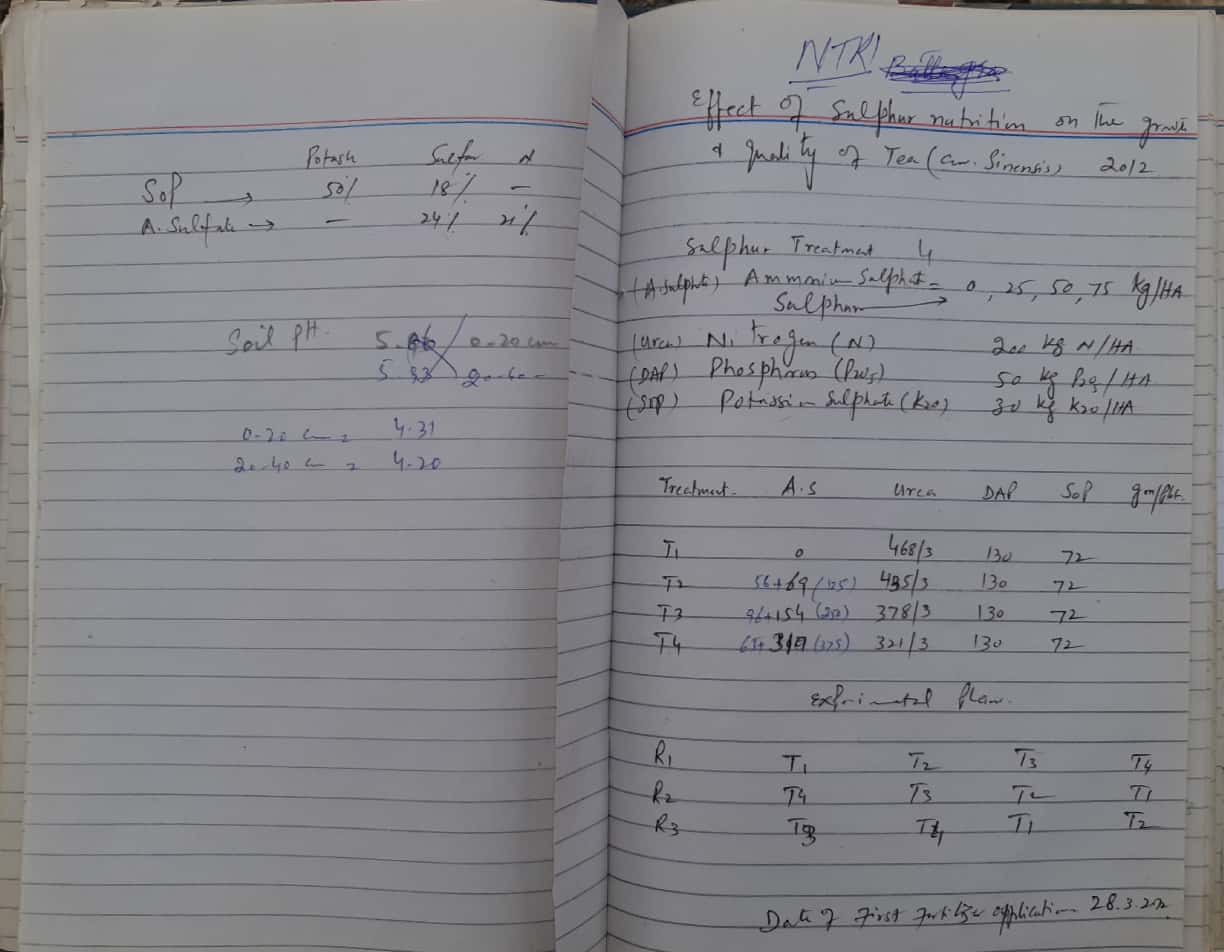 Potash Sulfur N
SOP → 50% 18% –
A. Sulfate → – 24% 21%
Soil PH. 0-20 cm
5.33 20-40
0-20 cm = 4.31
20-40 cm = 4.20
NTRI
Effect of Sulphur nutrition on the growth
& quality of Tea (cv. Sinensis) 2012
Sulphur Treatment 4
(A.Sulphate) Ammonium Sulphate = 0, 25, 50, 75 Kg/HA
Sulphur →
(Urea) Nitrogen (N) 200 kg N/HA
(DAP) Phosphorus (P2O5) 50 kg P2O5/HA
(SOP) Potassium Sulphate (K2O) 30 kg K2O/HA
Treatment. A.S Urea DAP SOP gm/plt.
T1 0 468/3 130 72
T2 56+69 (125) 435/3 130 72
T3 96+154 (250) 378/3 130 72
T4 321/3 130 72
Exprimetal Plan.
R1 T1 T2 T3 T4
R2 T4 T3 T2 T1
R3 T3 T4 T1 T2
Date of First Fertilizer application 28.3.